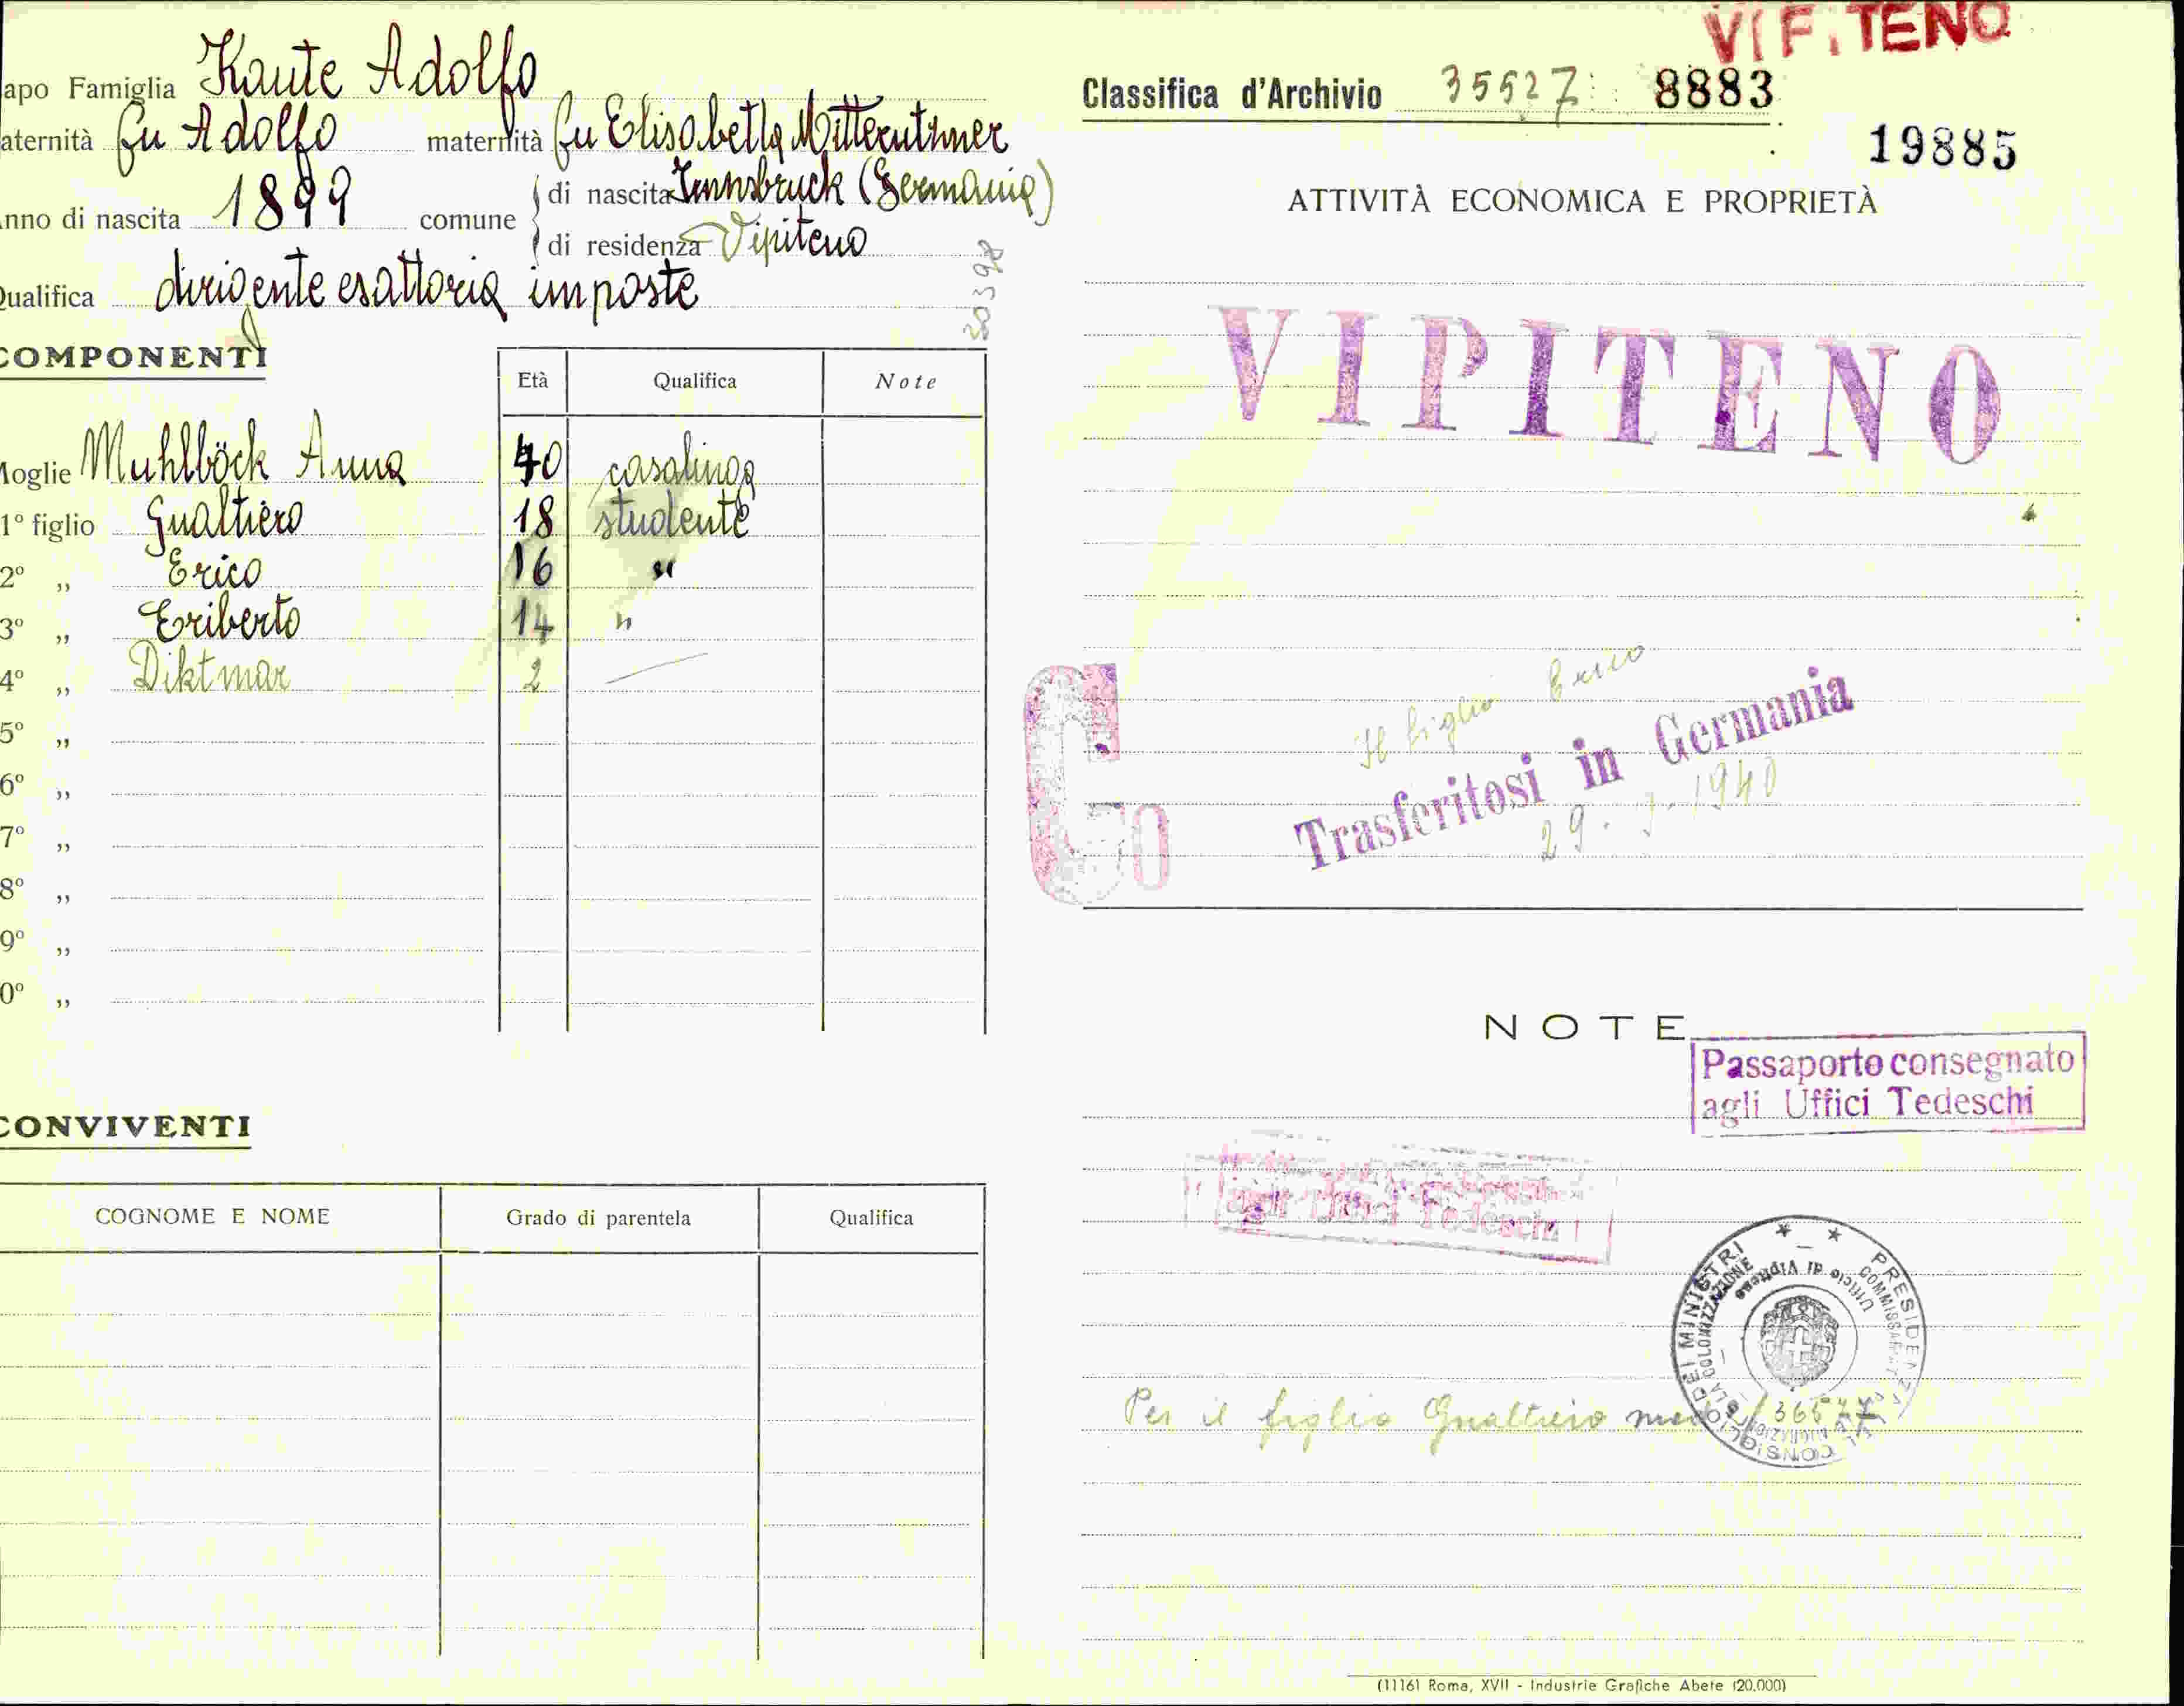 apo Famiglia Kaute Adolfo
aternità fu Adolfo maternità fu Elisabetta Mitterutzner
nno di nascita 1899 comune di nascita Innsbruck (Germania)
di residenza Vipiteno
Qualifica dirigente esattoria imposte
30398
COMPONENTI
Età Qualifica Note
Moglie Muhlböck Anna 40 casalinga
1° figlio Gualtiero 18 studente
2° „ Erico 16 "
3° „ Eriberto 14 "
4° „ Diktmar 2 —
5° „
6° „
7° „
8° „
9° „
0° „
CONVIVENTI
COGNOME E NOME Grado di parentela Qualifica
VIPITENO
Classifica d'Archivio 35527 8883
19885
ATTIVITÀ ECONOMICA E PROPRIETÀ
VIPITENO
G
Il figlio Erico
Trasferitosi in Germania
1940
NOTE
Passaporto consegnato
agli Uffici Tedeschi
agli Uffici Tedeschi
PRESIDENZA DEL CONSIGLIO DEI MINISTRI
Ufficio di Vipiteno
Per il figlio Gualtiero
(11161 Roma, XVII - Industrie Grafiche Abete (20.000)